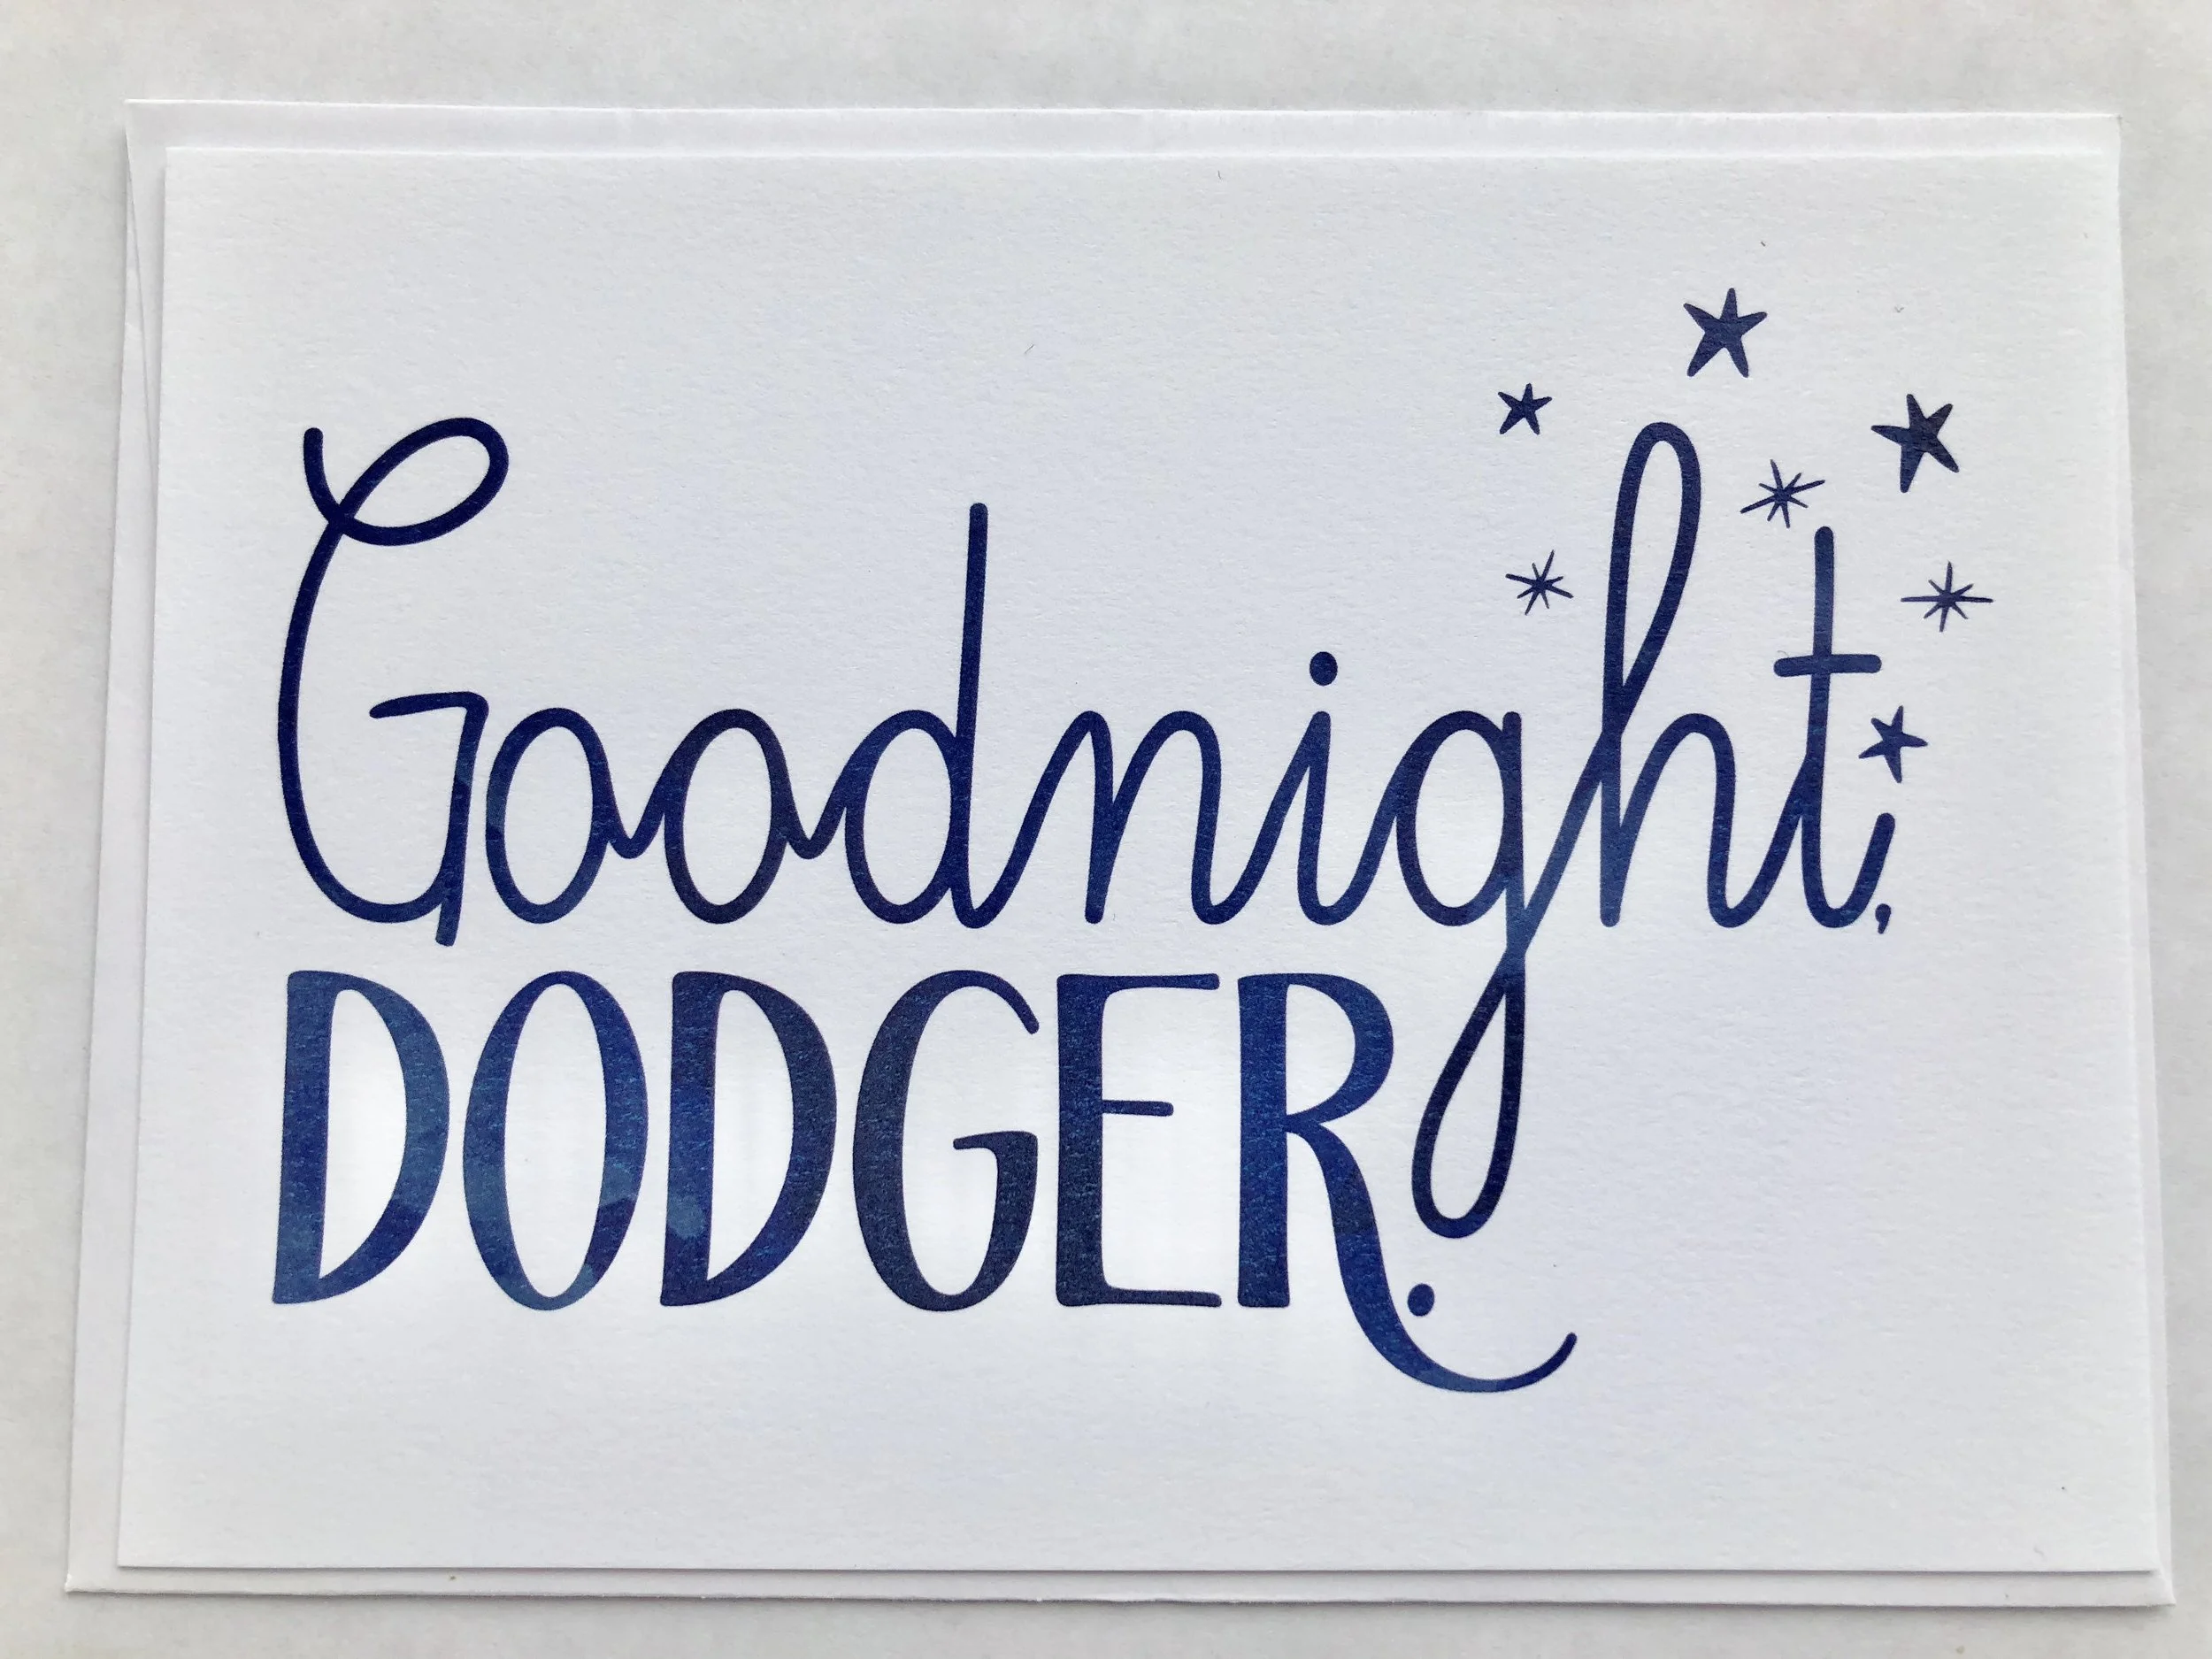 Goodnight,
DODGER.